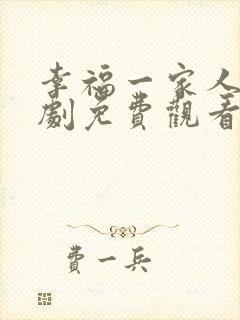 幸福一家人
劇免費觀看
費一兵